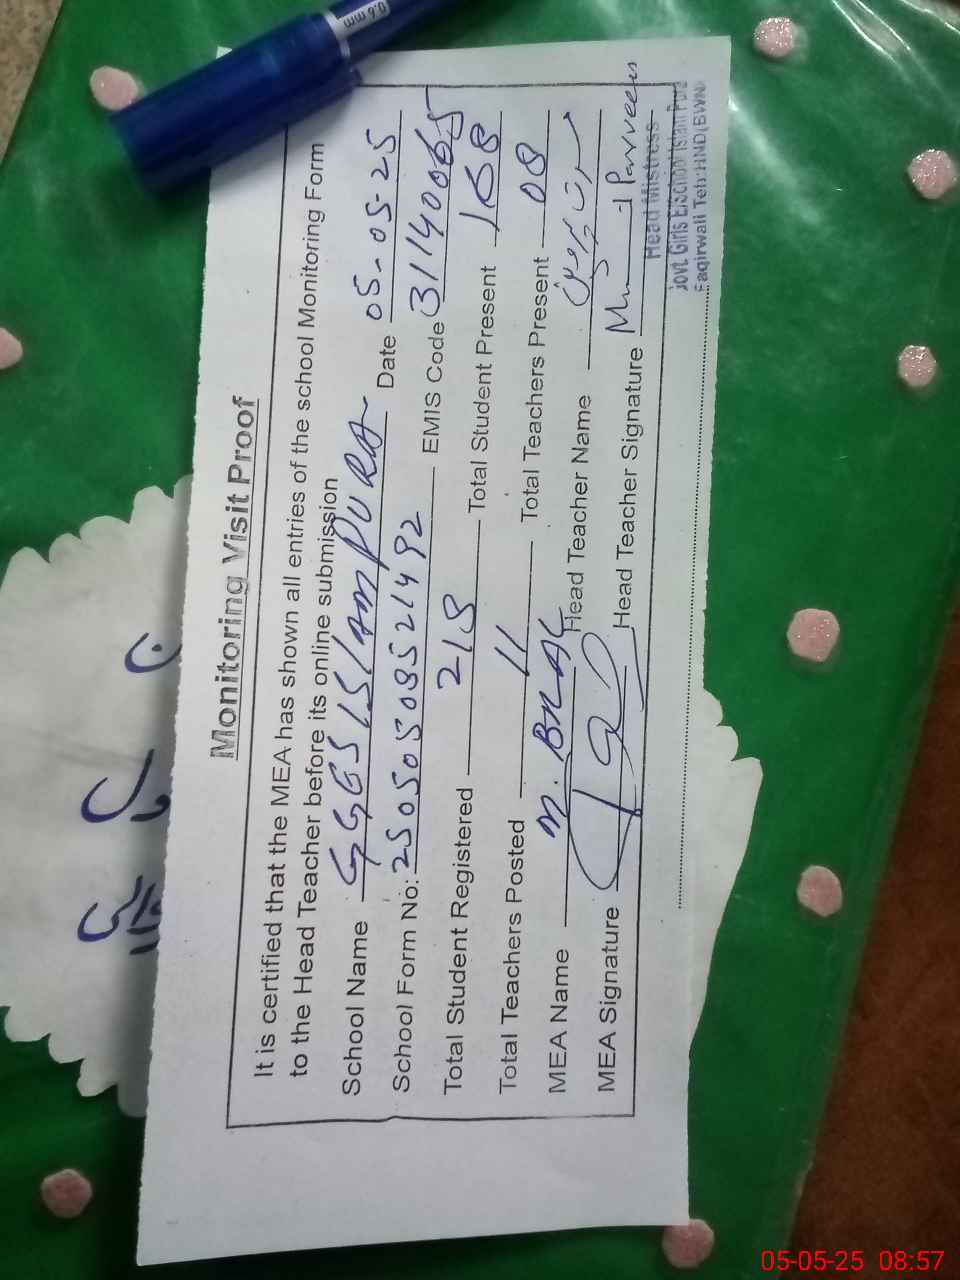 Monitoring Visit Proof
It is certified that the MEA has shown all entries of the school Monitoring Form
to the Head Teacher before its online submission
School Name GGES ISLAMPURA Date 05-05-25
School Form No: 250505085521492 EMIS Code 31140065
Total Student Registered 218 Total Student Present 168
Total Teachers Posted 11 Total Teachers Present 08
MEA Name M. Head Teacher Name
MEA Signature Head Teacher Signature Parveen
Head Mistress
Govt. Girls E/School Islam Pura
Faqirwali Teh: HND(BWN)
0.6 mm
05-05-25 08:57